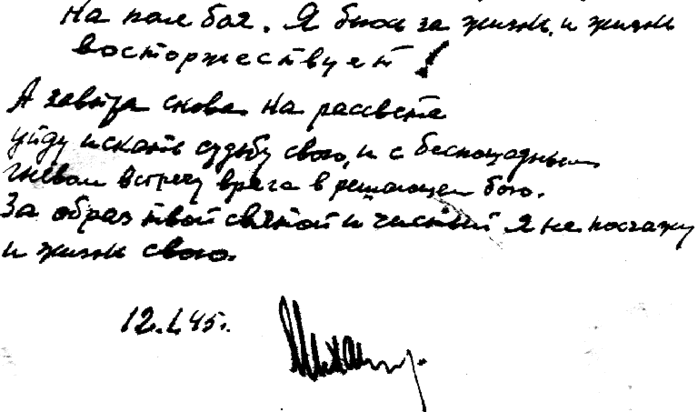 на поле боя. Я бьюсь за жизнь, и жизнь
восторжествует!
А завтра снова на рассвете
уйду искать судьбу свою, и с беспощадным
гневом встречу врага в решающем бою.
За образ твой святой и чистый я не посчажу
и жизнь свою.
12.I.45г.
Михаил